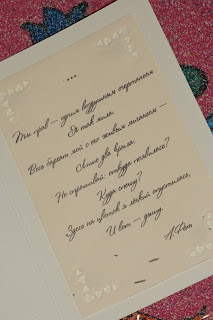 ***
Ты прав — одним воздушным очертаньем
Я так мила.
Весь бархат мой с его живым миганьем —
Лишь два крыла.
Не спрашивай: откуда появилась?
Куда спешу?
Здесь на цветок я легкий опустилась,
И вот — дышу.
А.Фет